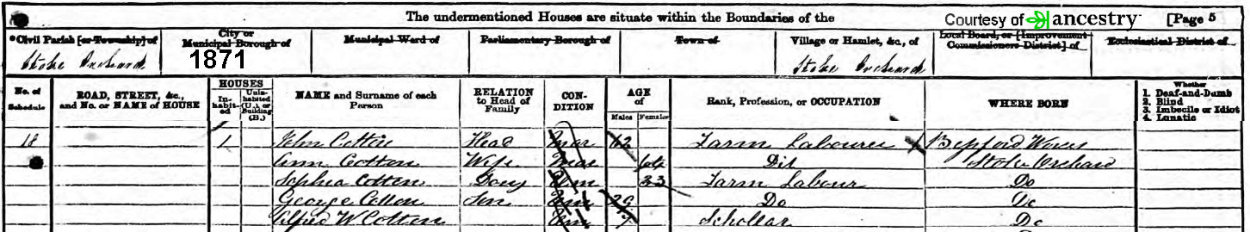 The undermentioned Houses are situate within the Boundaries of the
Courtesy of ancestry
[Page 5
Civil Parish [or Township] of
City or Municipal Borough of
Municipal Ward of
Parliamentary Borough of
Town of
Village or Hamlet, &c., of
Local Board, or [Improvement Commissioners District] of
Ecclesiastical District of
Stoke Orchard
1871
Stoke Orchard
No. of Schedule
ROAD, STREET, &c., and No. or NAME of HOUSE
HOUSES
In-habit-ed
Unin-habited (U.), or Building (B.)
NAME and Surname of each Person
RELATION to Head of Family
CON-DITION
AGE of
Males
Females
Rank, Profession, or OCCUPATION
WHERE BORN
Whether
1. Deaf-and-Dumb
2. Blind
3. Imbecile or Idiot
4. Lunatic
18 1 John Cotton Head Mar 62 Farm Labourer
Ann Cotton Wife Mar Dit Stoke Orchard
Sophia Cotton Unm 33 Farm Labour Do
George Cotton Son Unm 29 Do Do
Alfred W Cotton Unm 7 Schollar Do